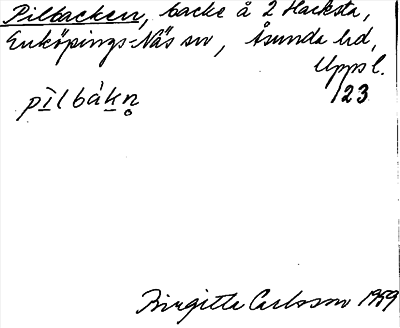 Pilbacken, backe å 2 Hacksta,
Enköpings-Näs sn, Åsunda hd,
Upps l.
123
pīlbàkn̥
Birgitte Carlsson 1959